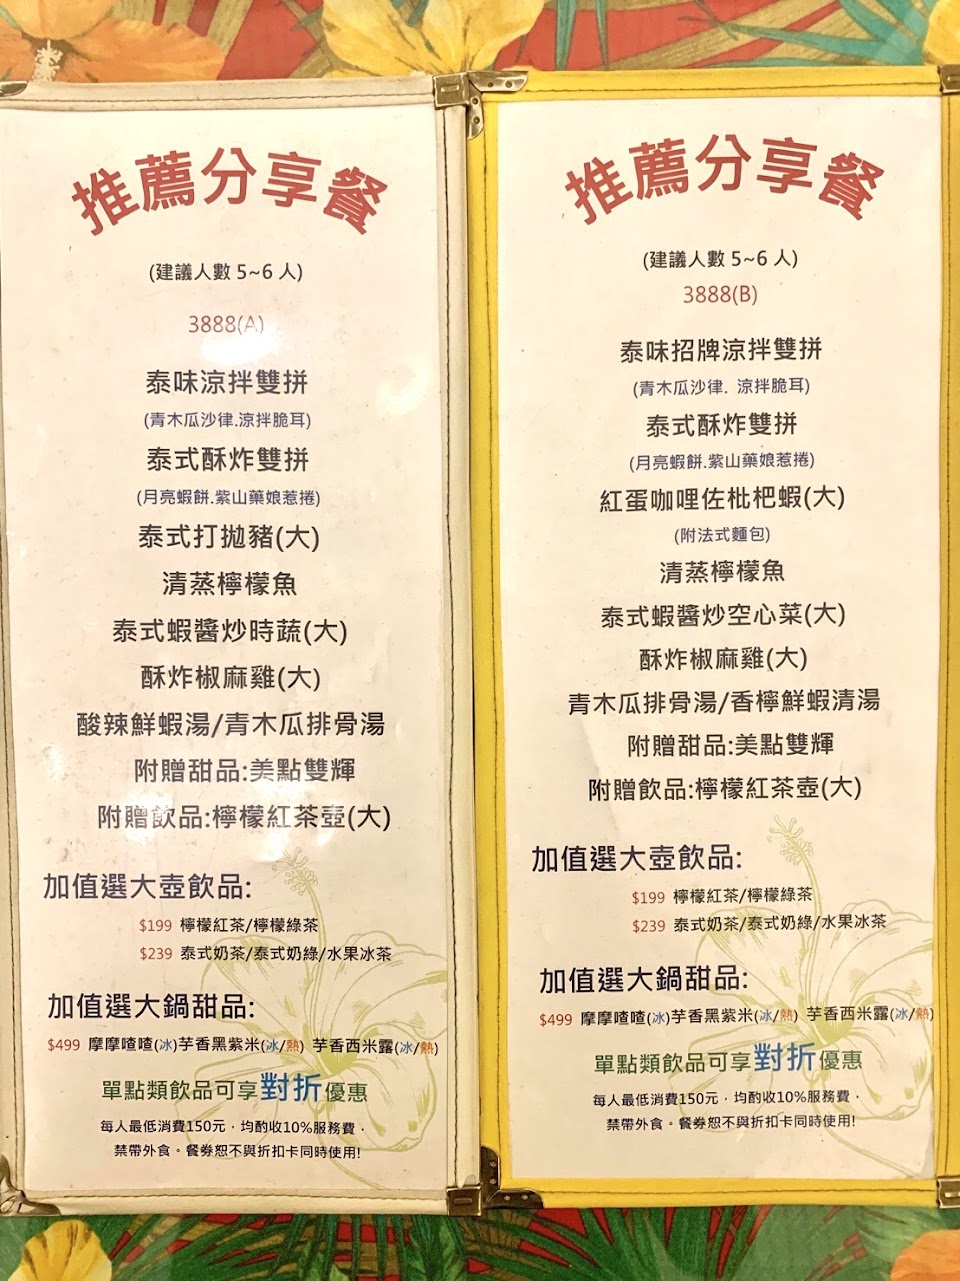 推薦分享餐
(建議人數 5~6 人)
3888(A)
泰味涼拌雙拼
(青木瓜沙律.涼拌脆耳)
泰式酥炸雙拼
(月亮蝦餅.紫山藥娘惹捲)
泰式打拋豬(大)
清蒸檸檬魚
泰式蝦醬炒時蔬(大)
酥炸椒麻雞(大)
酸辣鮮蝦湯/青木瓜排骨湯
附贈甜品:美點雙輝
附贈飲品:檸檬紅茶壺(大)
加值選大壺飲品:
$199 檸檬紅茶/檸檬綠茶
$239 泰式奶茶/泰式奶綠/水果冰茶
加值選大鍋甜品:
$499 摩摩喳喳(冰)芋香黑紫米(冰/熱) 芋香西米露(冰/熱)
單點類飲品可享對折優惠
每人最低消費150元，均酌收10%服務費，
禁帶外食。餐券恕不與折扣卡同時使用!
推薦分享餐
(建議人數 5~6 人)
3888(B)
泰味招牌涼拌雙拼
(青木瓜沙律. 涼拌脆耳)
泰式酥炸雙拼
(月亮蝦餅.紫山藥娘惹捲)
紅蛋咖哩佐枇杷蝦(大)
(附法式麵包)
清蒸檸檬魚
泰式蝦醬炒空心菜(大)
酥炸椒麻雞(大)
青木瓜排骨湯/香檸鮮蝦清湯
附贈甜品:美點雙輝
附贈飲品:檸檬紅茶壺(大)
加值選大壺飲品:
$199 檸檬紅茶/檸檬綠茶
$239 泰式奶茶/泰式奶綠/水果冰茶
加值選大鍋甜品:
$499 摩摩喳喳(冰)芋香黑紫米(冰/熱) 芋香西米露(冰/熱)
單點類飲品可享對折優惠
每人最低消費150元，均酌收10%服務費，
禁帶外食。餐券恕不與折扣卡同時使用!